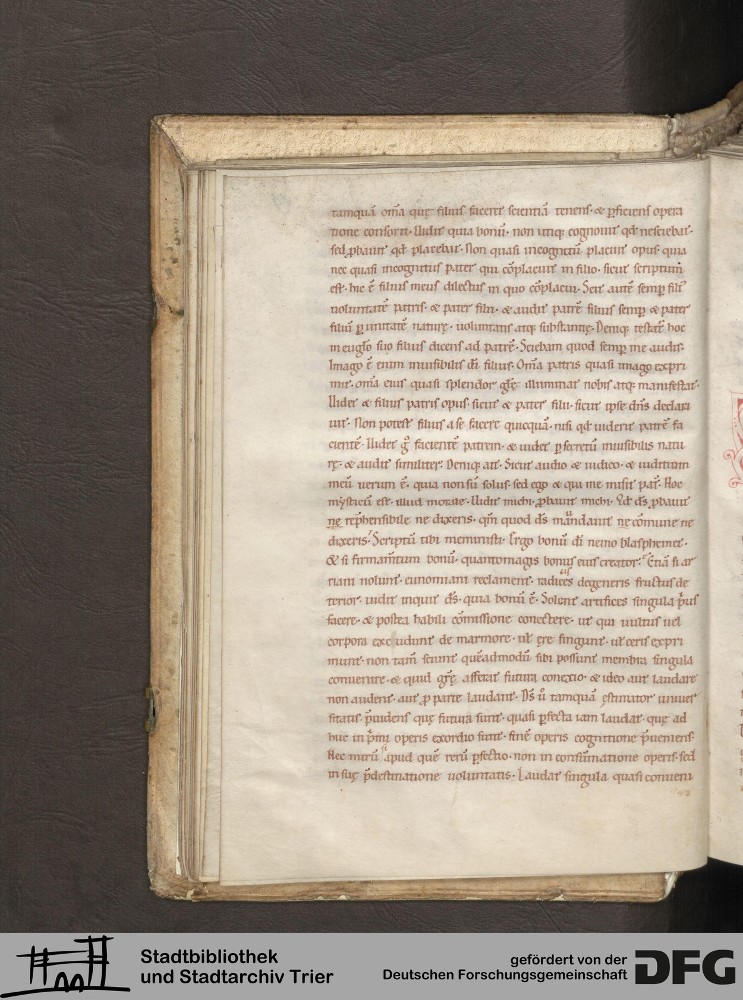 tamquā om̄a quę filius faceret scientiā tenens· & p̄ficiens opera
tione consorti· Uidit quia bonū· non utiq; cognouit qđ nesciebat·
sed p̱bauit qđ placebat· Non quasi incognitū placuit opus· quia
nec quasi incognitus pater qui cōplacuit in filio· sicut scriptum̄
est· hic ē filius meus dilectus in quo cōplacui· Scit autē semp̱ fili᷒
uoluntatē patris· & pater filii· & audit patrē filius semp̱ & pater
filiū p̱ unitatē naturę· uoluntatis atq; substantię· Deniq; testat̄ hoc
in euglo suo filius dicens ad patrē· Sciebam quod semp̱ me audis·
Imago ē enim inuisibilis dī filius· Om̄a patris quasi imago expri
mit· om̄a eius quasi splendor glę illuminat nobis atq; manifestat·
Uidet & filius patris opus· sicut & pater filii· sicut ipse dn̄s declara
uit· Non potest filius a se facere quicquā· nisi qđ uiderit patrē fa
cientē· Uidet g̊ facientē patrem· & uidet p̱ secretū inuisibilis natu
rę· & audit similiter· Deniq; ait· Sicut audio & iudico· & iuditium
meū uerum ē· quia non sū solus· sed ego & qui me misit pat̄· Hoc
mysticū est· illud morale· Uidit michi· p̱bauit michi· Qđ dš p̱bauit
ne rep̄hensibile ne dixeris· qm̄ quod dš mandauit ne cōmune ne
dixeris· Scriptū tibi meministi· Ergo bonū dī nemo blasphemet·
& si firmam̄tum bonū· quantomagis bonus eius creator· Etiā si ar
riani nolunt· eunomiani reclament· radicis degeneris fructus de
terior· uidit inquit dš· quia bonū ē· Solent artifices singula p̄us
facere· & postea habili cōmissione conectere· ut qui uultus uel
corpora excludunt de marmore· ul̄ ęre fingunt· ul̄ ceris expri
munt· non tam̄ sciunt quēadmodū sibi possint membra singula
conuenire· & quid grę afferat futura conexio· & ideo aut laudare
non audent· aut p̱ parte laudant· Dš ū tamquā ęstimator uniuer
sitatis· p̄uidens quę futura sunt· quasi p̱fecta iam laudat· quę ad
huc in p̄mi operis exordio sunt· finē operis cognitione p̄ueniens·
Nec mirū si apud quē rerū p̱fectio· non in consūmatione operis· sed
in suę p̄destinatione uoluntatis· Laudat singula quasi conueni
Stadtbibliothek
und Stadtarchiv Trier
gefördert von der
Deutschen Forschungsgemeinschaft
DFG